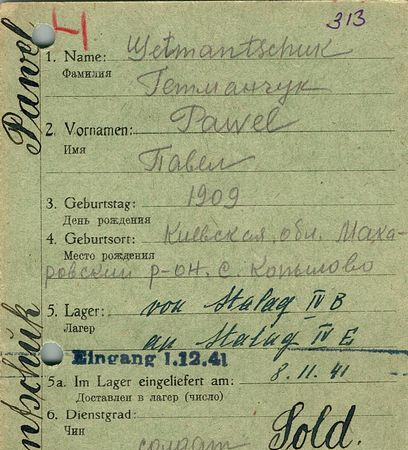 313
4
Pawel
1. Name: Getmantschuk
Фамилия Гетманчук
2. Vornamen: Pawel
Имя
Павел
3. Geburtstag: 1909
День рождения
4. Geburtsort: Киевская обл. Мака-
Место рождения
ровский р-он. с. Копылово
5. Lager: von Stalag IV B
Лагер
an Stalag IV E
Eingang 1.12.41
5a. Im Lager eingeliefert am: 8.11.41
Доставлен в лагер (число)
6. Dienstgrad: Sold.
Чин
солдат
ntschuk